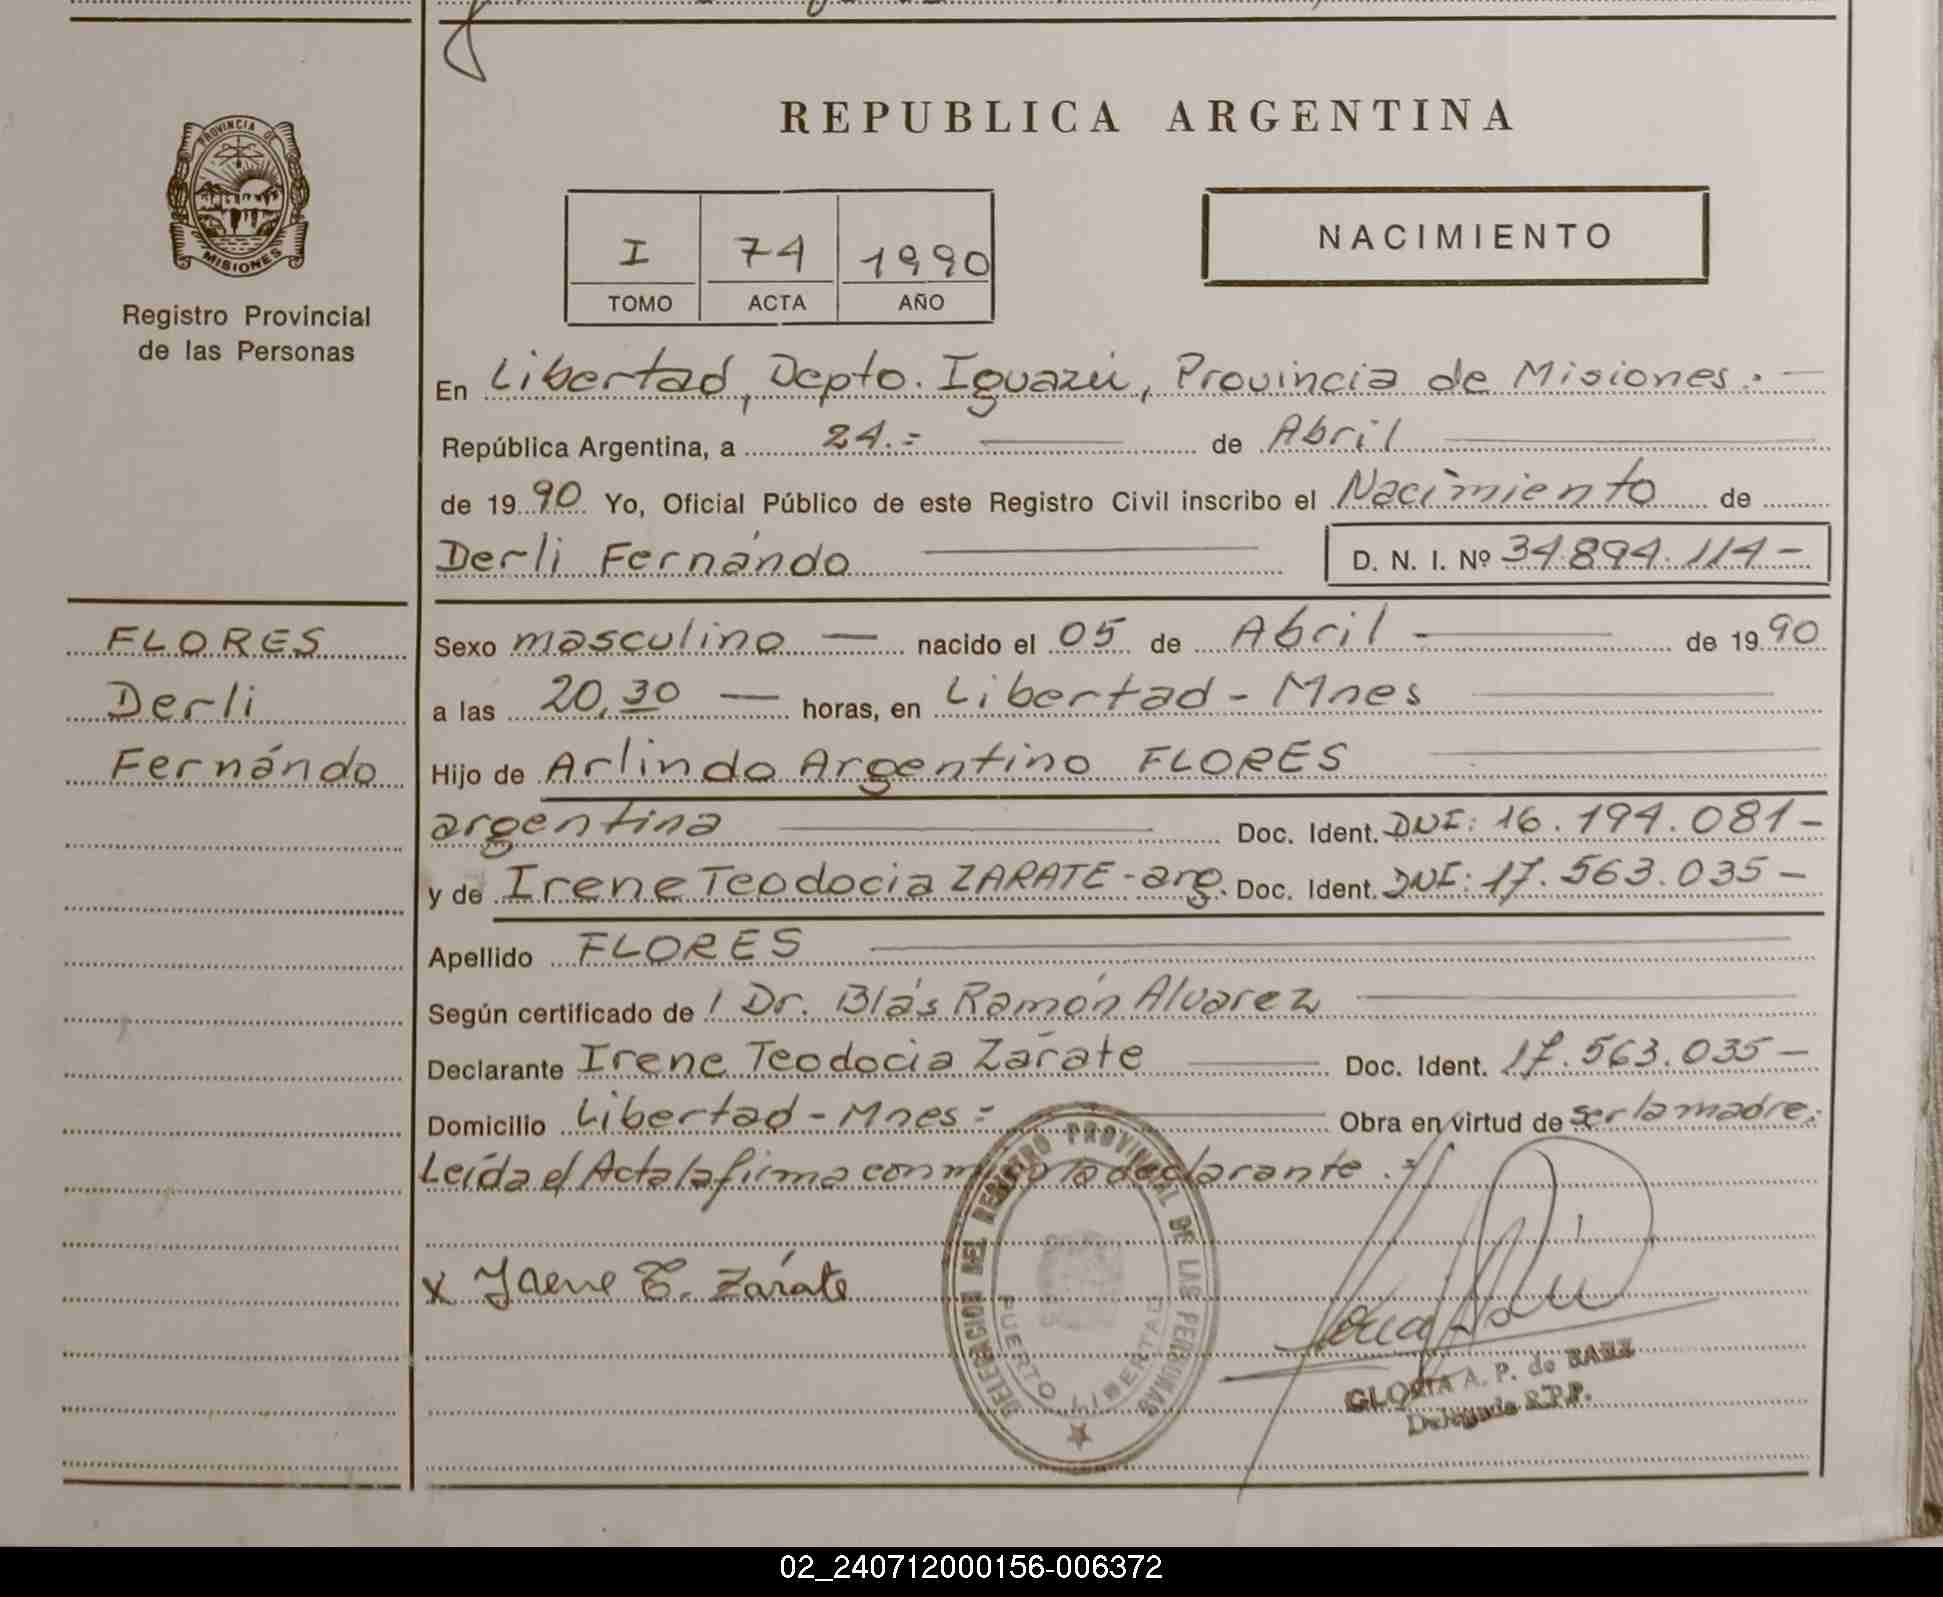 REPUBLICA ARGENTINA
PROVINCIA DE
MISIONES
Registro Provincial
de las Personas
I 74 1990
TOMO ACTA AÑO
NACIMIENTO
En Libertad, Depto. Iguazú, Provincia de Misiones.-
República Argentina, a 24.- de Abril
de 1990 Yo, Oficial Público de este Registro Civil inscribo el Nacimiento de
Derli Fernándo D. N. I. Nº 34.894.114-
FLORES
Derli
Fernándo
Sexo masculino nacido el 05 de Abril - de 1990
a las 20,30 horas, en Libertad - Mnes
Hijo de Arlindo Argentino FLORES
argentina Doc. Ident. DNI: 16.194.081-
y de Irene Teodocia ZARATE - arg. Doc. Ident. DNI: 17.563.035-
Apellido FLORES
Según certificado de / Dr. Blás Ramón Alvarez
Declarante Irene Teodocia Zárate Doc. Ident. 17.563.035-
Domicilio Libertad - Mnes = Obra en virtud de ser la madre.
Leída el Acta la firma conmigo la declarante.=
x Irene T. Zárate
DELEGACION DEL REGISTRO PROVINCIAL DE LAS PERSONAS
PUERTO LIBERTAD
GLORIA A. P. de BAEZ
Delegada R.P.P.
02_240712000156-006372